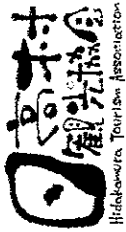 日高村
観光協会
Hidakamura Tourism Association